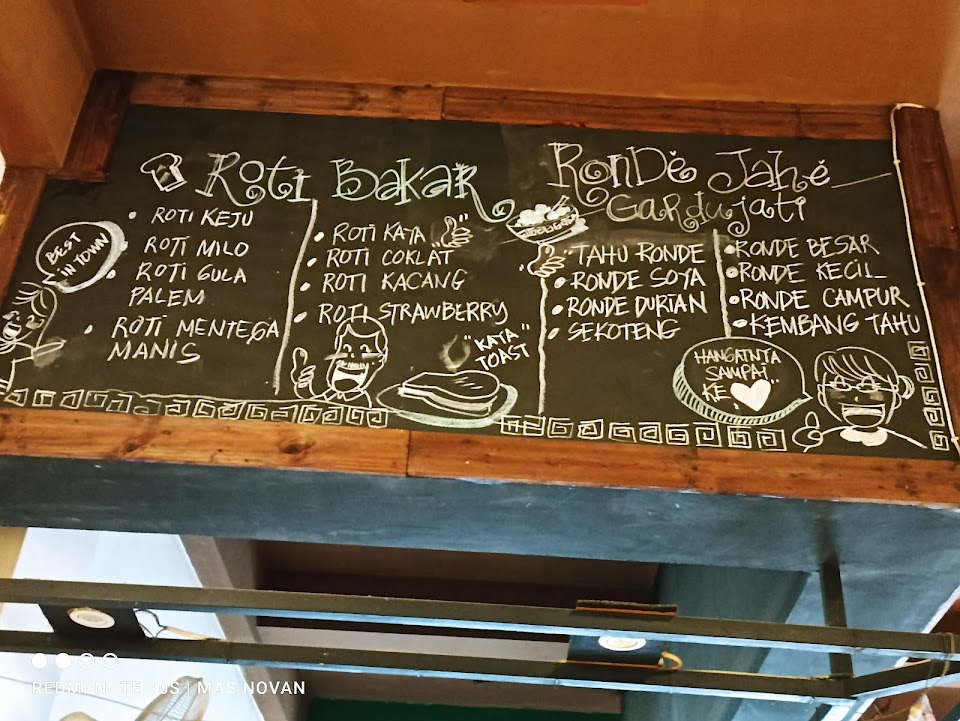 Roti Bakar
BEST
IN TOWN
ROTI KEJU
ROTI MILO
ROTI GULA
PALEM
ROTI MENTEGA
MANIS
ROTI KAYA
ROTI COKLAT
ROTI KACANG
ROTI STRAWBERRY
"KAYA"
TOAST
RONDÉ JAHÉ
GARDUJATI
TAHU RONDE
RONDE SOYA
RONDE DURIAN
SEKOTENG
RONDE BESAR
RONDE KECIL
RONDE CAMPUR
KEMBANG TAHU
HANGATNYA
SAMPAI
KE
REDMI NOTE 10S | MAS NOVAN